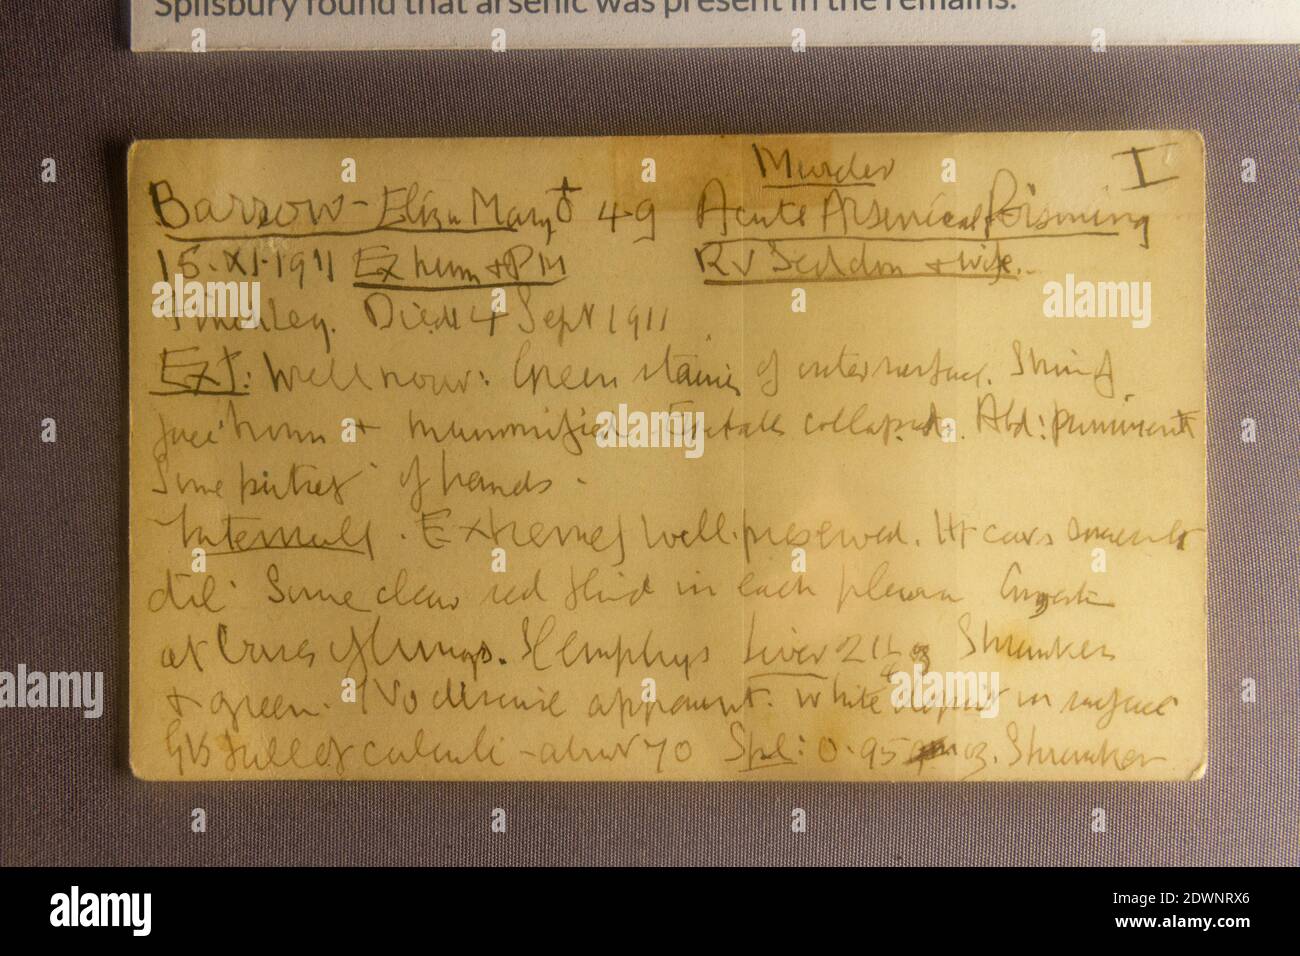 Spilsbury found that arsenic was present in the remains.
Murder I
Barrow - Eliza Mary ♀ 49 Acute Arsenical Poisoning
15.XI.1911 Exhum + PM R v Seddon + wife.
Finchley. Died 4 Sept 1911
Ext: Well nour: Green stains of outer surface. Skin of
face brown + mummified. Eyeballs collapsed. Abd: prominent
Some of hands.
Internally. Extremely well preserved. Ht cavs
dil. Some clear red fluid in each pleura Congestn
at bases of lungs. Emphys Liver 21 oz Shrunken
+ green. No disease apparent. White deposit on surface
GB full of calculi - about 70 Spl: 0.95 oz. Shrunken
alamy
Image ID: 2DWNRX6
www.alamy.com